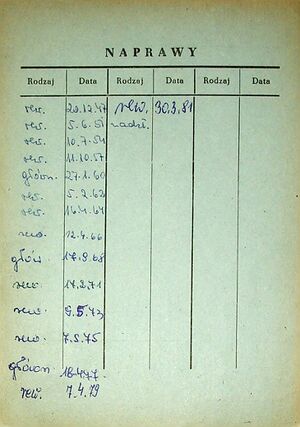 NAPRAWY
Rodzaj Data Rodzaj Data Rodzaj Data
rew. 20.12.47 rew. 30.3.81
rew. 5.6.51 nadzł.
rew. 10.7.54
rew. 11.10.57
główn. 27.1.60
rew. 5.2.63
rew. 16.4.64
rew. 12.4.66
główn. 17.9.68
rew. 17.2.71
rew. 9.5.73
rew. 7.5.75
główn. 18.4.77.
rew. 7.4.79